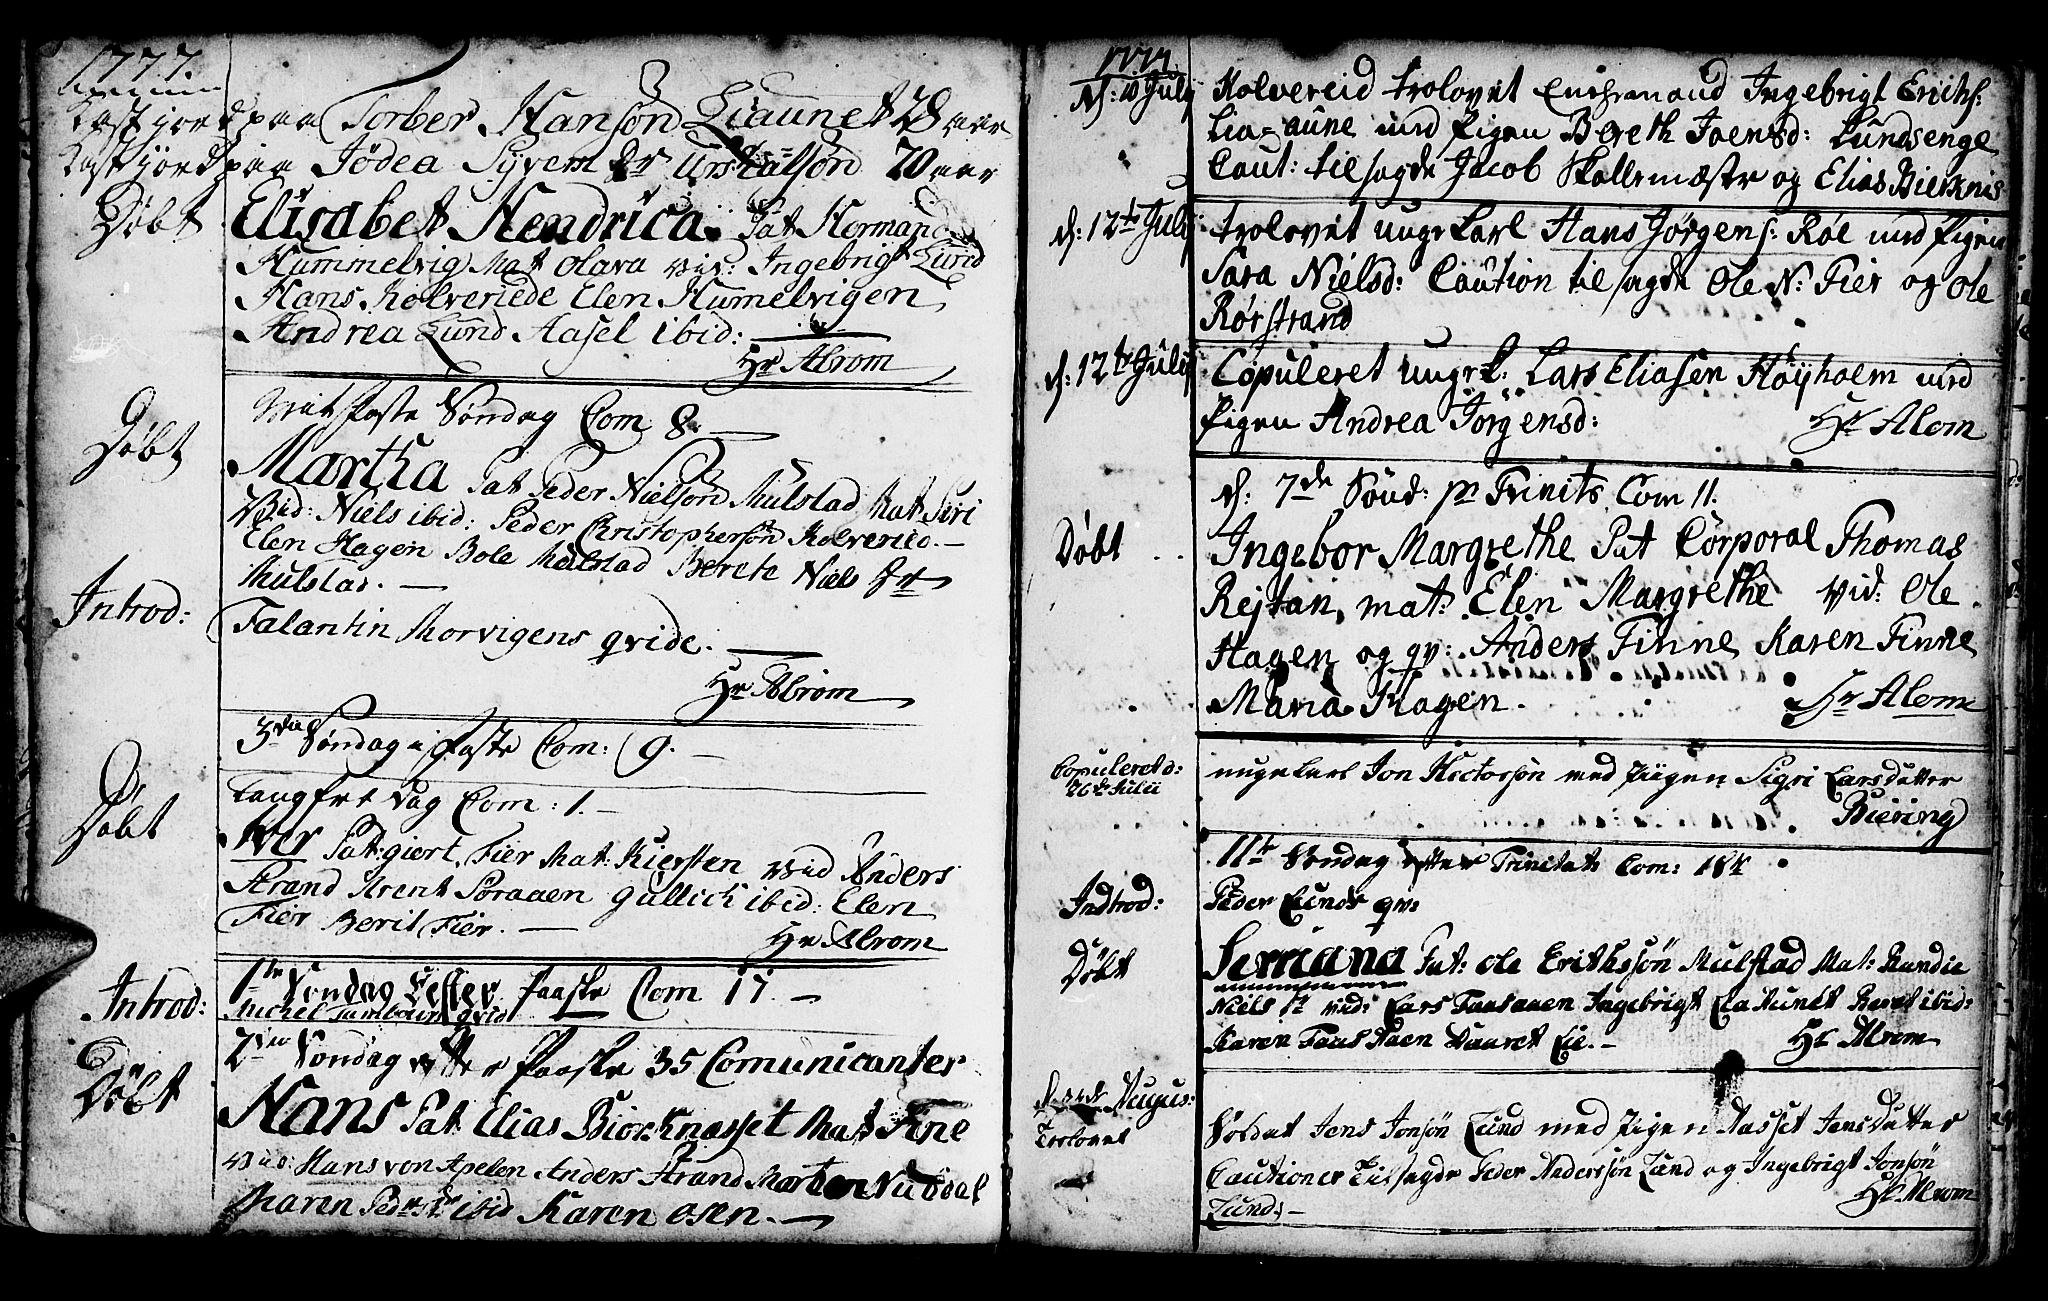 1777.
Kast jord paa Torber Hansøn Liaunet 28 aar
Kast jord paa Jødea Syvem 70 aar
Døbt Elisabet Hendrica. Pat Herman
Hummelvig Mat Olava vid: Ingebrigt Lund
Hans Kolveriede Elen Humelvigen
Andrea Lund Aasel ibid:
Hr Abrom
Midfaste Søndag Com 8.
Døbt Martha Pat Peder Nielsøn Mulstad Mat Siri
Vid: Niels ibid: Peder Christophersøn Kolveried.
Elen Hagen Bole Mulstad Berete Niels
Mulstad.
Introd: Falantin Morvigens qvide.
Hr Abrom
3die Søndag i faste Com: 9.
Langfre dag Com: 1.
Døbt Iver Pat: giert Fier Mat: Kiersten vid Anders
Strand Arent Søraaen Gullich ibid: Elen
Fier Berit Fier.
Hr Abrom
1te Søndag Effter Paaske Com 17.
Introd: Michel Tambours qvid
2den Søndag efter Paaske 35 Comunicanter
Døbt Hans Pat Elias Biørknesset Mat Fine
vid: Hans von Apelen Anders Strand Morten Nubdal
Maren Pedersdr ibid Karen Osen.
1777.
d: 10 July Kolvereid trolovet Enchemand Ingebrigt Erichs:
Lia-aune med Pigen Bereth Joensd: Lundsenge
Caut: tilsagde Jacob Skollemæster og Elias Bierknis
d: 12te July trolovet unge Karl Hans Jørgens: Røe med Pigen
Sara Nielsd: Caution tilsagde Ole N: Fier og Ole
Rørstrand
d: 12te July Copuleret unge k: Lars Eliasen Høyholm med
Pigen Andrea Jörgensd:
Hr Alom
d: 7de Sönd: pr Trinits Com 11.
Døbt Ingebor Margrethe Pat Corporal Thomas
Rejtan, mat: Elen Margrethe vid: Ole
Hagen og qv: Anders Finne Karen Finne
Maria Hagen.
Hr Alom
Copuleret d: 26de Julii unge karl Jon Hectorsøn med Piigen Sigri Larsdatter
Biering
11te Søndag efter Trinitat: Com: 18
Indtrod: Peder Lunds qv:
Døbt Serriana Pat: Ole Erichssøn Mulstad Mat: Randie
Niels dr vid: Lars Faasaaen Ingebrigt Lia Aunet Beret ibid:
Karen Faas Aaen Maaret Lie.
Hr Abrom
Augus: Trolovet Soldat Jens Jonsøn Lund med Pigen Aasset Jensdatter
Cautioner Tilsagde Peder Pederssøn Lund og Ingebrigt Jonsøn
Lund
Hr Abrom